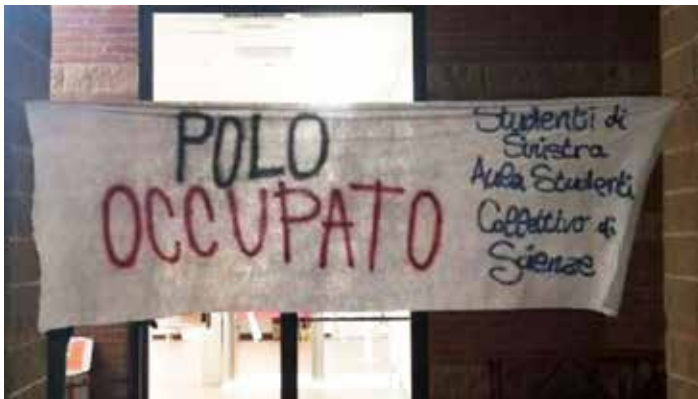 POLO
OCCUPATO
Studenti di
Sinistra
Aula Studenti
Collettivo di
Scienze